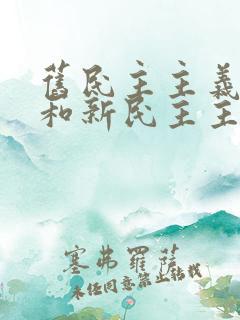 舊民主主義
和新民主主
塞弗羅薩
未任同意禁止轉載